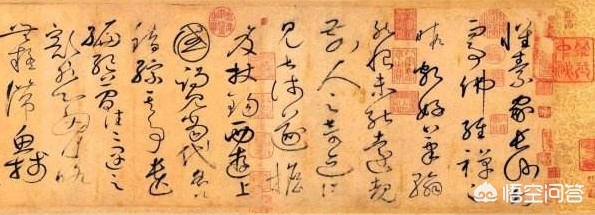 懷素家長沙幼而
事佛經禪之
暇頗好筆翰
然恨未能遠覩
前人之奇迹所
見甚淺遂擔
笈杖錫西遊上
國謁見當代名公
錯綜其事遺
編絕簡往往遇之
豁然心胸略
無疑滯魚牋
悟空问答